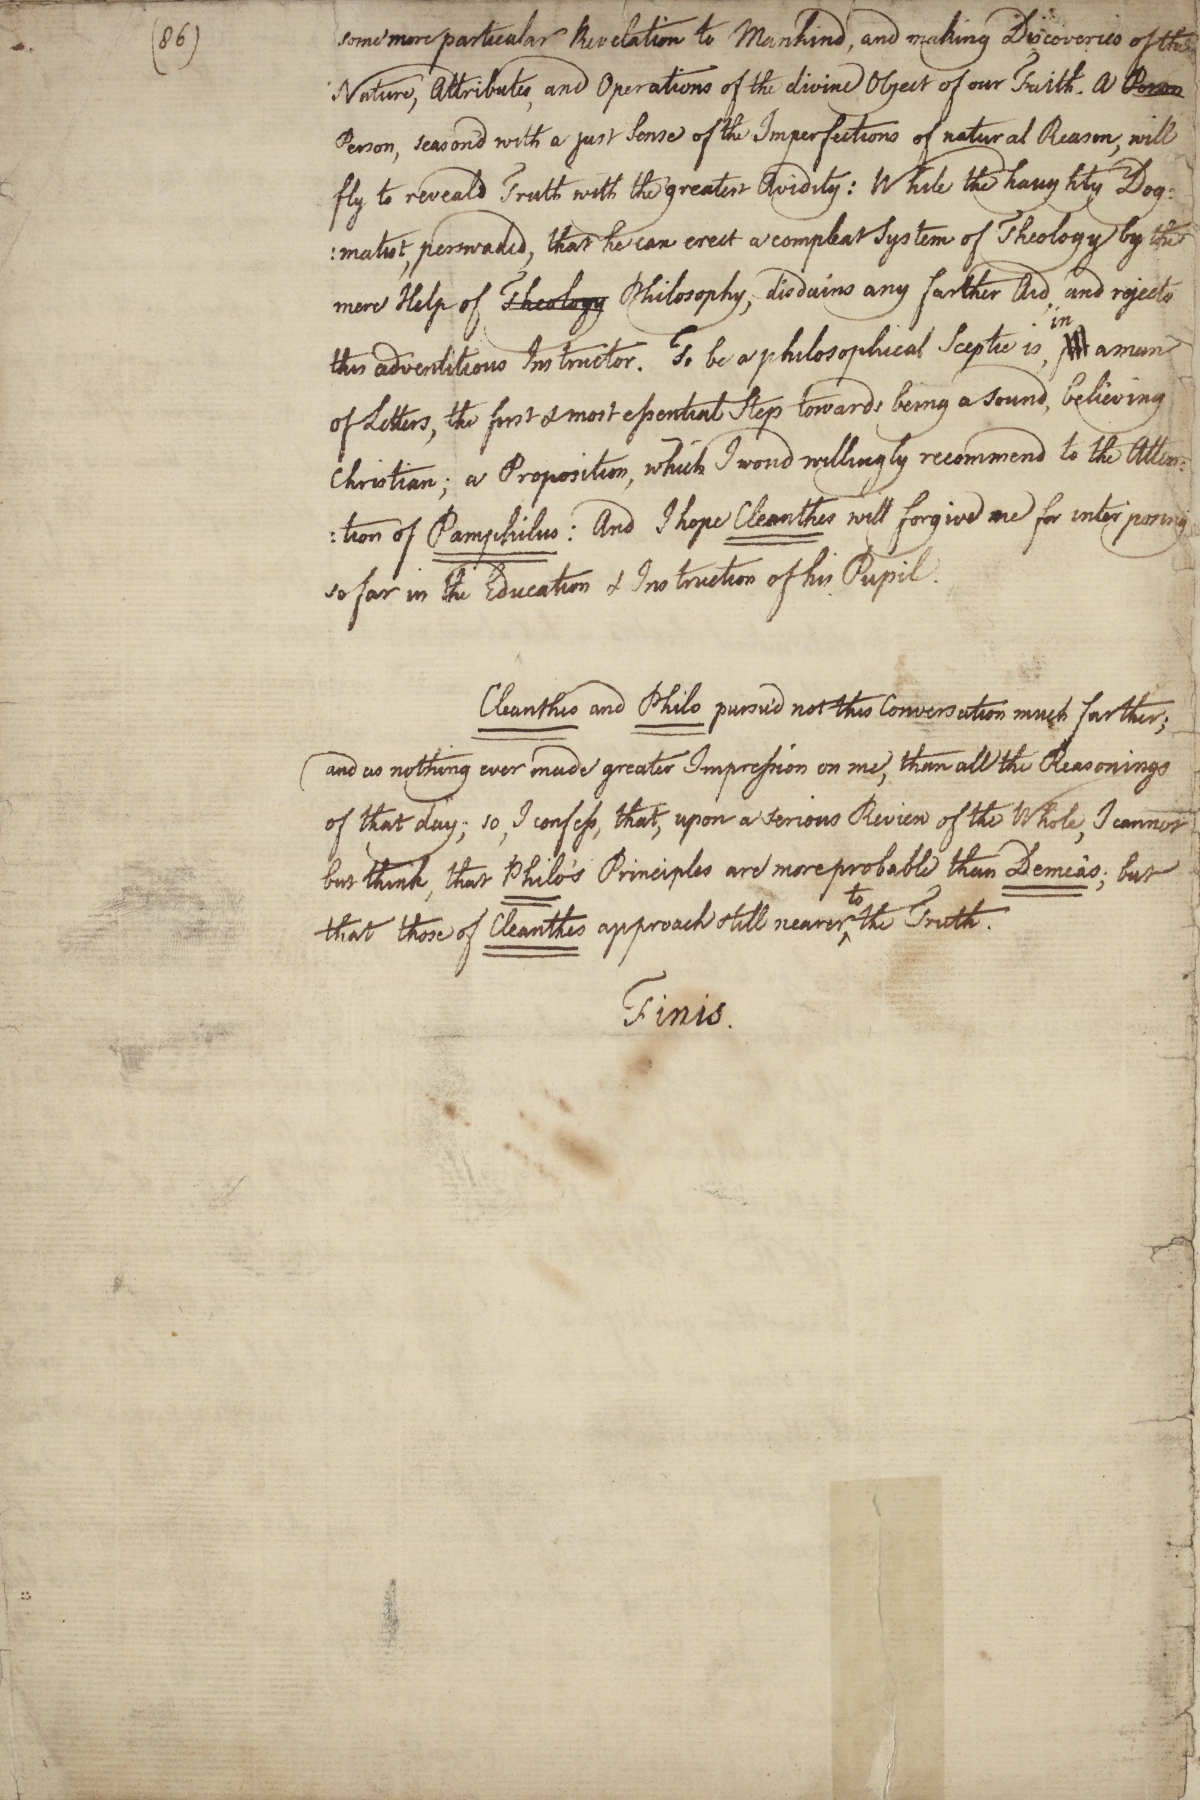 (86)
some more particular Revelation to Mankind, and making Discoveries of the
Nature, Attributes, and Operations of the divine Object of our Faith. A Person
Person, seasond with a just Sense of the Imperfections of natural Reason, will
fly to reveald Truth with the greatest Avidity: While the haughty Dog:
:matist, perswaded, that he can erect a compleat System of Theology by the
mere Help of Theology Philosophy, disdains any farther Aid, and rejects
this adventitious Instructor. To be a philosophical Sceptic is, in a man
of Letters, the first & most essential Step towards being a sound, believing
Christian; a Proposition, which I woud willingly recommend to the Atten:
:tion of Pamphilus: And I hope Cleanthes will forgive me for interposing
so far in the Education & Instruction of his Pupil.
Cleanthes and Philo pursu'd not this Conversation much farther;
and as nothing ever made greater Impression on me, than all the Reasonings
of that day; so, I confess, that, upon a serious Review of the Whole, I cannot
but think, that Philo's Principles are more probable than Demea's; but
that those of Cleanthes approach still nearer to the Truth.
Finis.